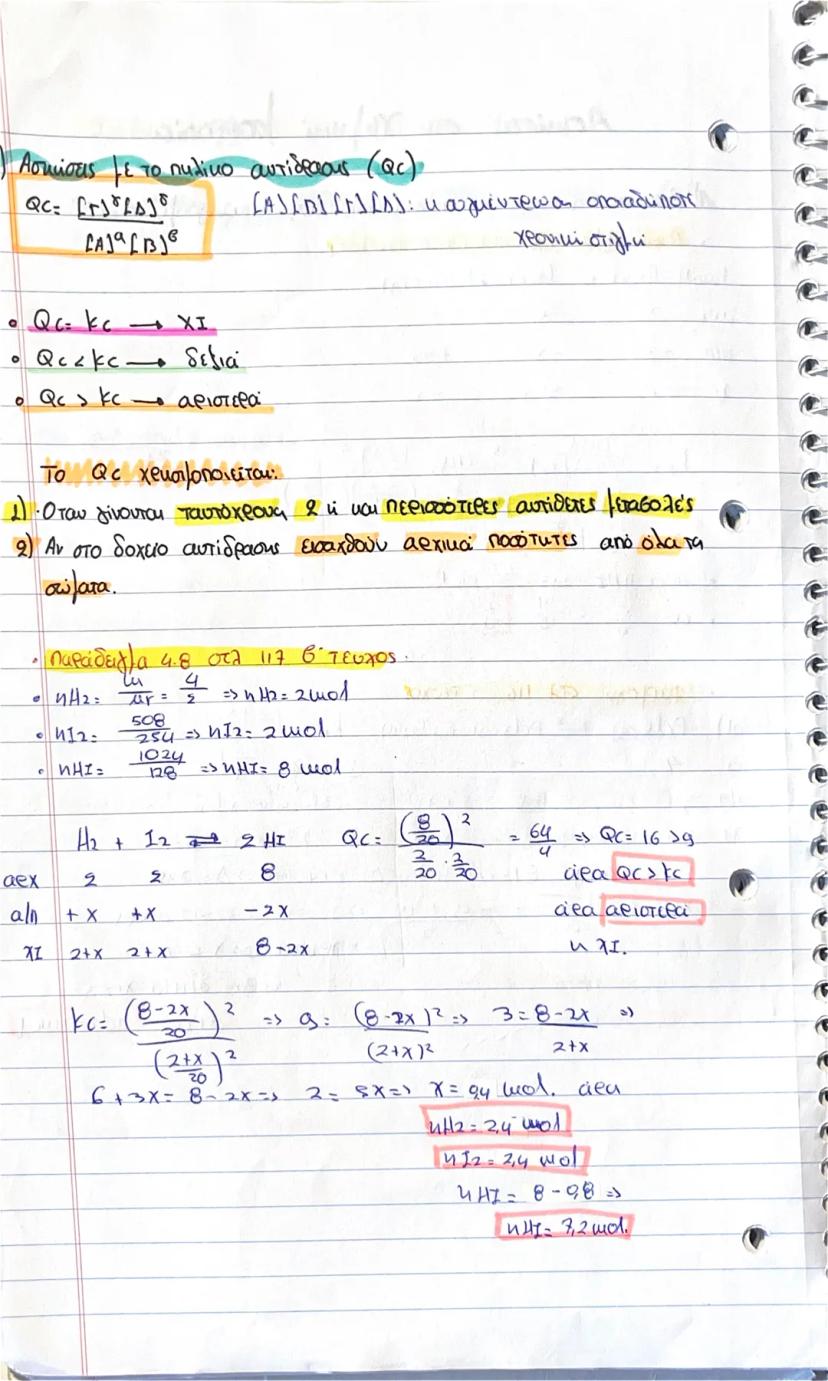 ) Ασκήσεις με το πηλίκο αντίδρασης (Qc)
Qc = [Γ]^γ [Δ]^δ / [A]^α [B]^β [A] [B] [Γ] [Δ]: η συγκέντρωση οποιαδήποτε
χρονική στιγμή
• Qc = kc → XI
• Qc < kc → δεξιά
• Qc > kc → αριστερά
Το Qc χρησιμοποιείται:
1) Όταν γίνονται ταυτόχρονα 2 ή και περισσότερες αντίθετες μεταβολές
2) Αν στο δοχείο αντίδρασης εισαχθούν αρχικά ποσότητες από όλα τα
σώματα.
• Παράδειγμα 4.8 σελ 117 β' τεύχος.
• nH2 = m/Mr = 4/2 => nH2 = 2mol
• nI2 = 508/254 => nI2 = 2mol
• nHI = 1024/128 => nHI = 8 mol
H2 + I2 ⇄ 2 HI Qc = (8/20)^2 / (2/20 · 2/20) = 64/4 => Qc = 16 > 9
αρχ 2 2 8 άρα Qc > kc
α/π +x +x -2x άρα αριστερά
XI 2+x 2+x 8-2x η XI.
kc = (8-2x/20)^2 / (2+x/20)^2 => 9 = (8-2x)^2 / (2+x)^2 => 3 = 8-2x / 2+x =>
6+3x = 8-2x => 2 = 5x => x = 0,4 mol. άρα
nH2 = 2,4 mol
nI2 = 2,4 mol
nHI = 8 - 0,8 =>
nHI = 7,2 mol.